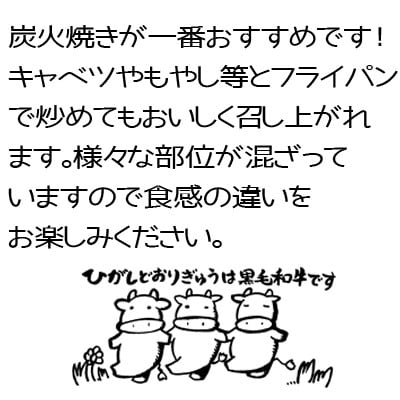 炭火焼きが一番おすすめです!
キャベツやもやし等とフライパン
で炒めてもおいしく召し上がれ
ます。様々な部位が混ざって
いますので食感の違いを
お楽しみください。
ひがしどおりぎゅうは黒毛和牛です